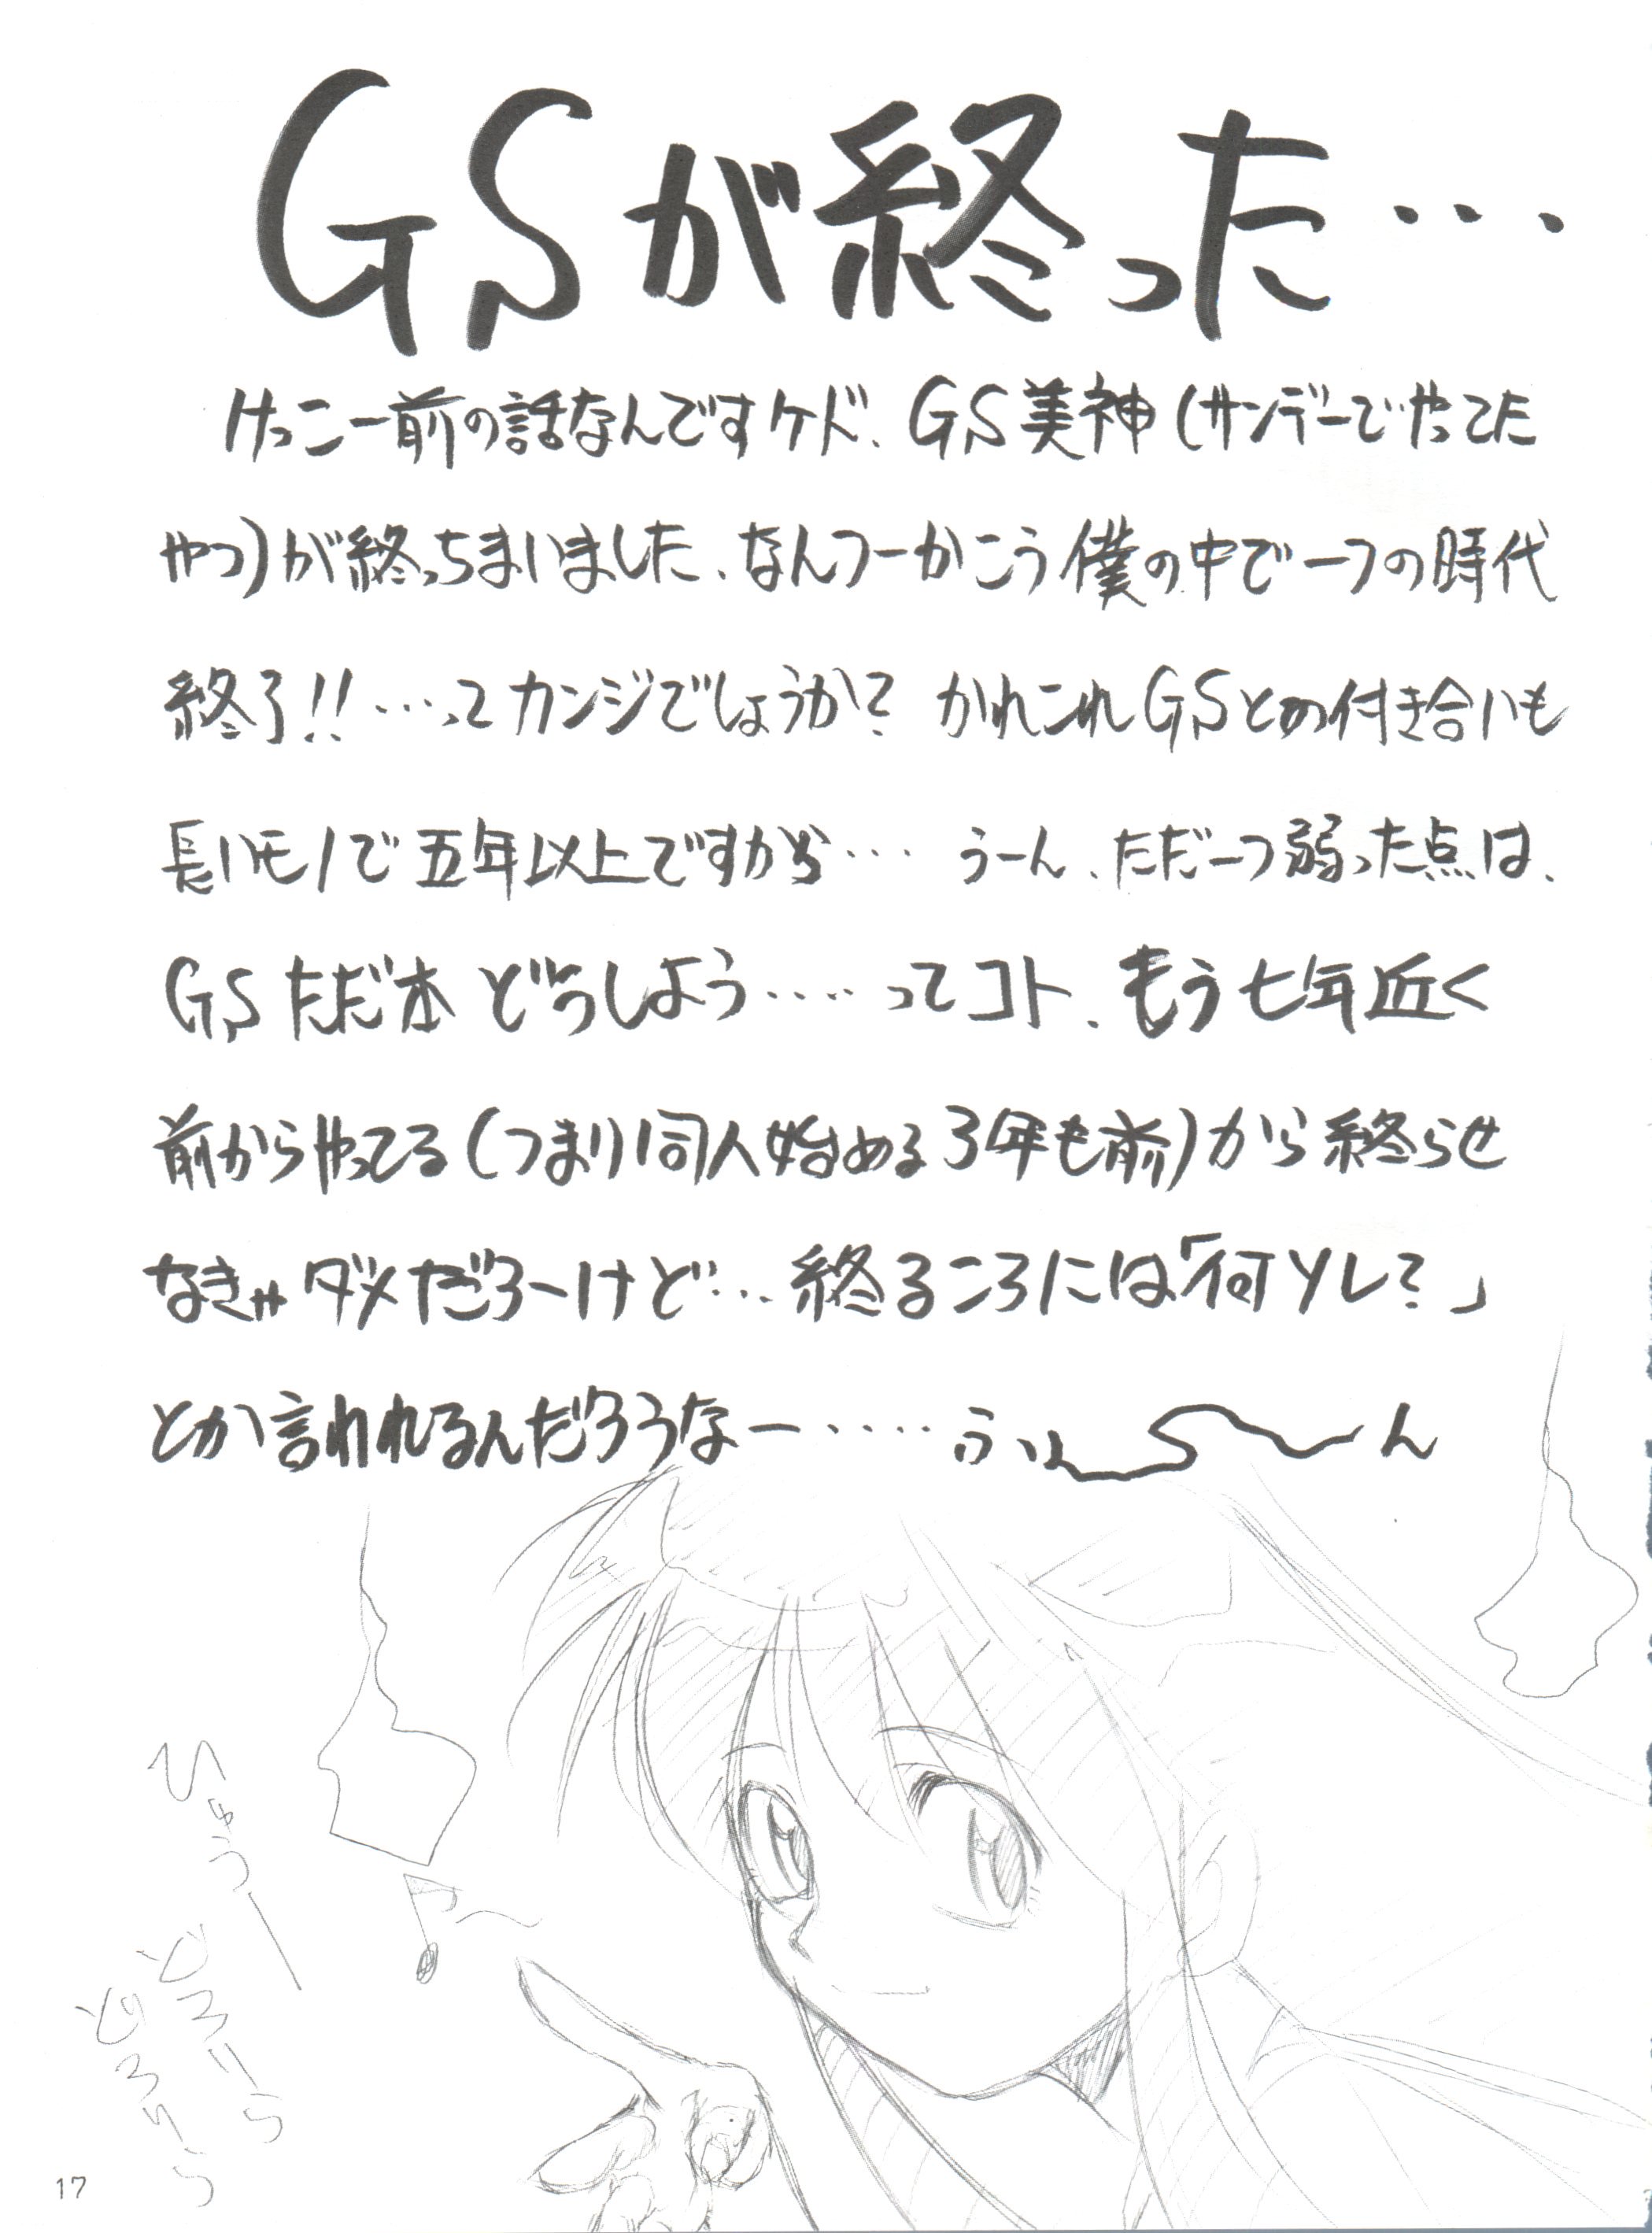 GSが終った…
けっこー前の話なんですケド、GS美神(サンデーでやってた
やつ)が終っちまいました、なんつーかこう僕の中で一つの時代
終了!!…ってカンジでしょうか? かれこれGSとの付き合いも
長いモノで五年以上ですから… うーん、ただ一つ弱った点は、
GSただ本 どうしよう……ってコト、もう七年近く
前からやってる(つまり同人始める3年も前)から終らせ
なきゃダメだろーけど…終るころには「何ソレ?」
とか言われるんだろうなー……うぃ〜ん
ひゅうー
どろりろ
どろりろ
17